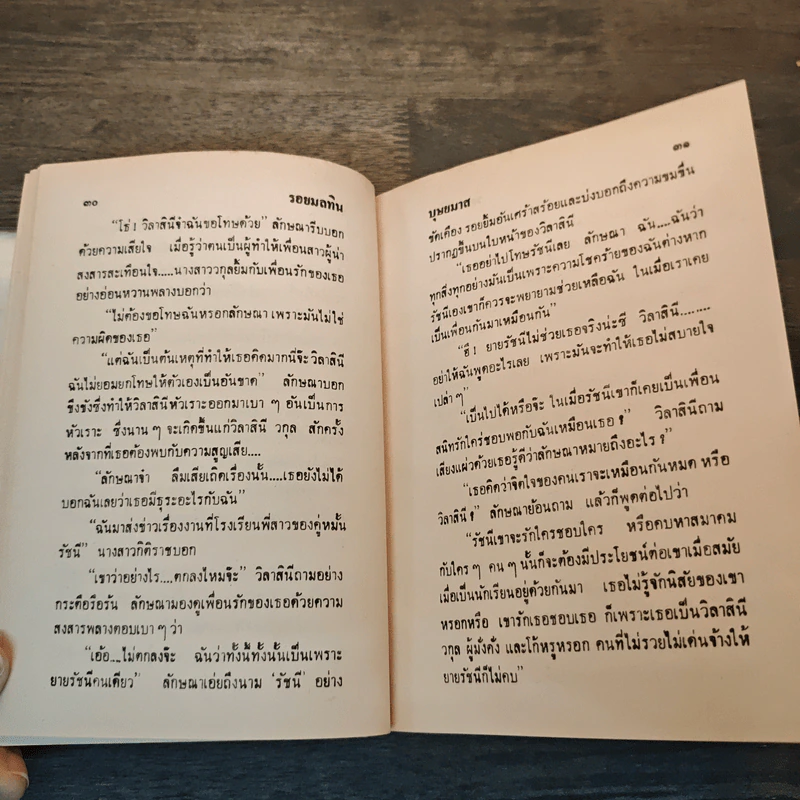 ๓๐ รอยมลทิน
“โธ่ ! วิลาสินีจ๋าฉันขอโทษด้วย” ลักษณารีบบอก
ด้วยความเสียใจ เมื่อรู้ว่าตนเป็นผู้ทำให้เพื่อนสาวผู้น่า
สงสารสะเทือนใจ.....นางสาววกุลยิ้มกับเพื่อนรักของเธอ
อย่างอ่อนหวานพลางบอกว่า
“ไม่ต้องขอโทษฉันหรอกลักษณา เพราะมันไม่ใช่
ความผิดของเธอ”
“แต่ฉันเป็นต้นเหตุที่ทำให้เธอคิดมากนี่จ๊ะ วิลาสินี
ฉันไม่ยอมยกโทษให้ตัวเองเป็นอันขาด” ลักษณาบอก
ขึงขังซึ่งทำให้วิลาสินีหัวเราะออกมาเบา ๆ อันเป็นการ
หัวเราะ ซึ่งนาน ๆ จะเกิดขึ้นแก่วิลาสินี วกุล สักครั้ง
หลังจากที่เธอต้องพบกับความสูญเสีย....
“ลักษณาจ๋า ลืมเสียเถิดเรื่องนั้น....เธอยังไม่ได้
บอกฉันเลยว่าเธอมีธุระอะไรกับฉัน”
“ฉันมาส่งข่าวเรื่องงานที่โรงเรียนพี่สาวของคู่หมั้น
รัชนี” นางสาวกิติราชบอก
“เขาว่าอย่างไร....ตกลงไหมจ๊ะ” วิลาสินีถามอย่าง
กระตือรือร้น ลักษณามองดูเพื่อนรักของเธอด้วยความ
สงสารพลางตอบเบา ๆ ว่า
“เอ้อ....ไม่ตกลงจ๊ะ ฉันว่าทั้งนี้ทั้งนั้นเป็นเพราะ
ยายรัชนีคนเดียว” ลักษณาเอ่ยถึงนาม ‘รัชนี’ อย่าง
๓๑
บุษยมาส
ขัดเคือง รอยยิ้มอันเศร้าสร้อยและบ่งบอกถึงความขมขื่น
ปรากฏขึ้นบนใบหน้าของวิลาสินี
“เธออย่าไปโทษรัชนีเลย ลักษณา ฉัน....ฉันว่า
ทุกสิ่งทุกอย่างมันเป็นเพราะความโชคร้ายของฉันต่างหาก
รัชนีเองเขาก็ควรจะพยายามช่วยเหลือฉัน ในเมื่อเราเคย
เป็นเพื่อนกันมาเหมือนกัน”
“ฮึ ! ยายรัชนีไม่ช่วยเธอจริงน่ะซี วิลาสินี........
อย่าให้ฉันพูดอะไรเลย เพราะมันจะทำให้เธอไม่สบายใจ
เปล่า ๆ”
“เป็นไปได้หรือจ๊ะ ในเมื่อรัชนีเขาก็เคยเป็นเพื่อน
สนิทรักใคร่ชอบพอกับฉันเหมือนเธอ ?” วิลาสินีถาม
เสียงแผ่วด้วยเธอรู้ดีว่าลักษณาหมายถึงอะไร ?”
“เธอคิดว่าจิตใจของคนเราจะเหมือนกันหมด หรือ
วิลาสินี ?” ลักษณาย้อนถาม แล้วก็พูดต่อไปว่า
“รัชนีเขาจะรักใครชอบใคร หรือคบหาสมาคม
กับใคร ๆ คน ๆ นั้นก็จะต้องมีประโยชน์ต่อเขาเมื่อสมัย
เมื่อเป็นนักเรียนอยู่ด้วยกันมา เธอไม่รู้จักนิสัยของเขา
หรอกหรือ เขารักเธอชอบเธอ ก็เพราะเธอเป็นวิลาสินี
วกุล ผู้มั่งคั่ง และโก้หรูหรอก คนที่ไม่รวยไม่เด่นจ้างให้
ยายรัชนีก็ไม่คบ”